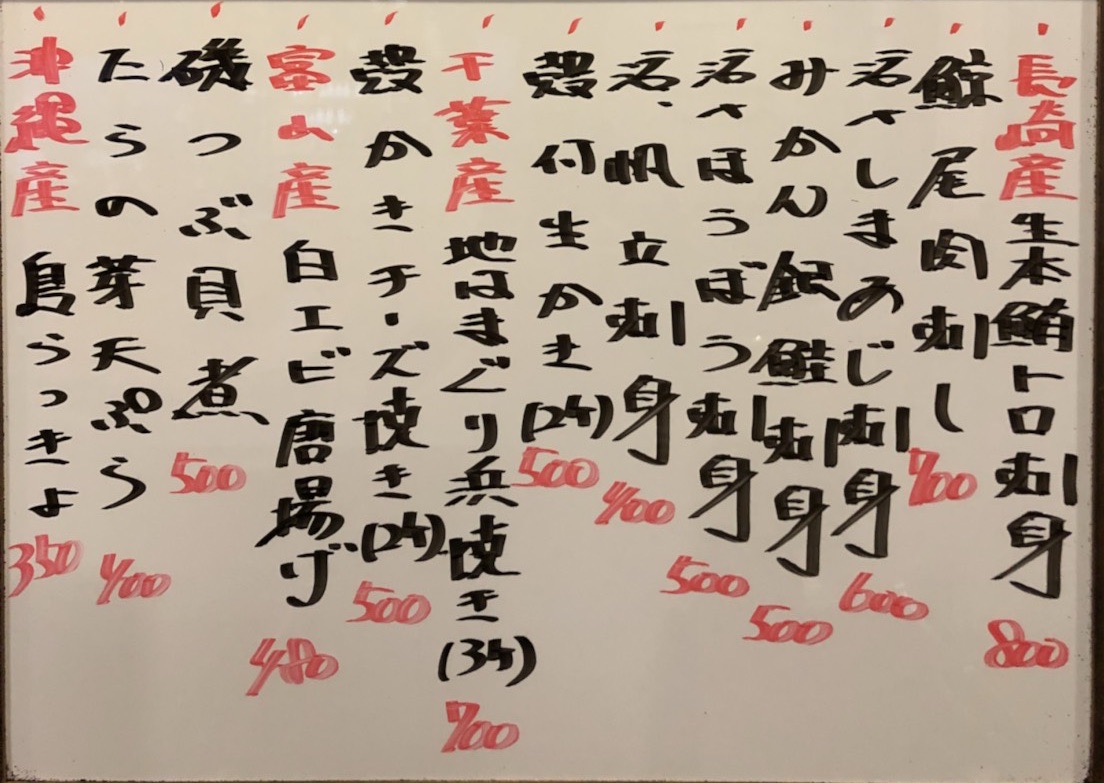 長崎産生本鮪トロ刺身 800
鯨尾肉刺し 700
活〆しまあじ刺身 600
みかん銀鮭刺身 500
活〆ほうぼう刺身 500
活〆帆立刺身 400
殻付生かき(2ケ) 500
千葉産地はまぐり浜焼き(3ケ) 700
殻かきチーズ焼き(2ケ) 500
富山産白エビ唐揚げ 480
磯つぶ貝煮 500
たらの芽天ぷら 400
沖縄産島らっきょ 350